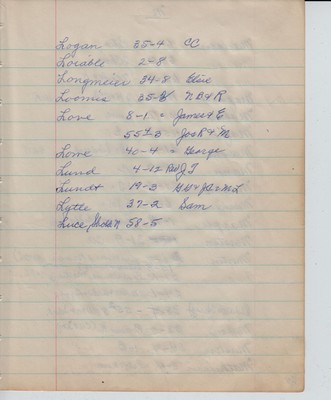 Logan 35-4 CC
Lorable 2-8
Longmeier 34-8 Elsie
Loomis 35-8 NB & R
Love 8-1 = James & E
55 1-3 Jos R & M
Lowe 40-4 = George
Lund 4-12 Rev J T
Lundt 19-3
Lytle 37-2 Sam
Luce 58-5